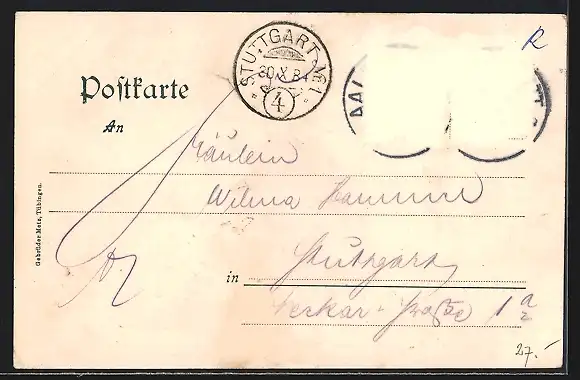 STUTTGART No 1
30 X
4
AAL
R
Postkarte
An
Fräulein
Wilma Hammer
in Stuttgart
Neckar-Straße 1a
2
Gebrüder Metz, Tübingen.
27.-